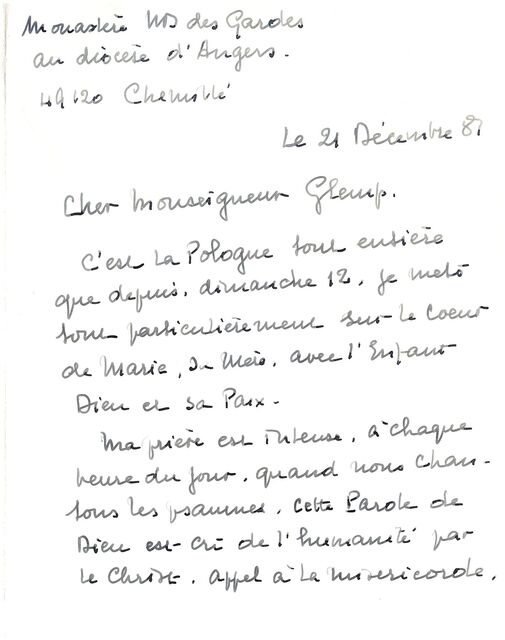 Monastère ND des Gardes
au diocèse d'Angers.
49120 Chemillé
Le 21 Décembre 81
Cher Monseigneur Glemp.
C'est la Pologne tout entière
que depuis, dimanche 12, je mets
tout particulièrement sur le Coeur
de Marie, avec l'Enfant
Dieu et sa Paix.
Ma prière est intense, à chaque
heure du jour, quand nous chan-
tons les psaumes, cette Parole de
Dieu est cri de l'humanité par
le Christ, appel à la misericorde,